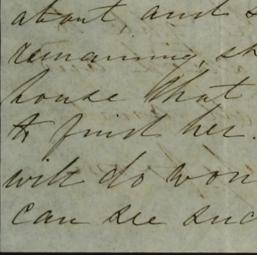 about, and s
remaining, sh
house that
to find her.
will do won
can see suc